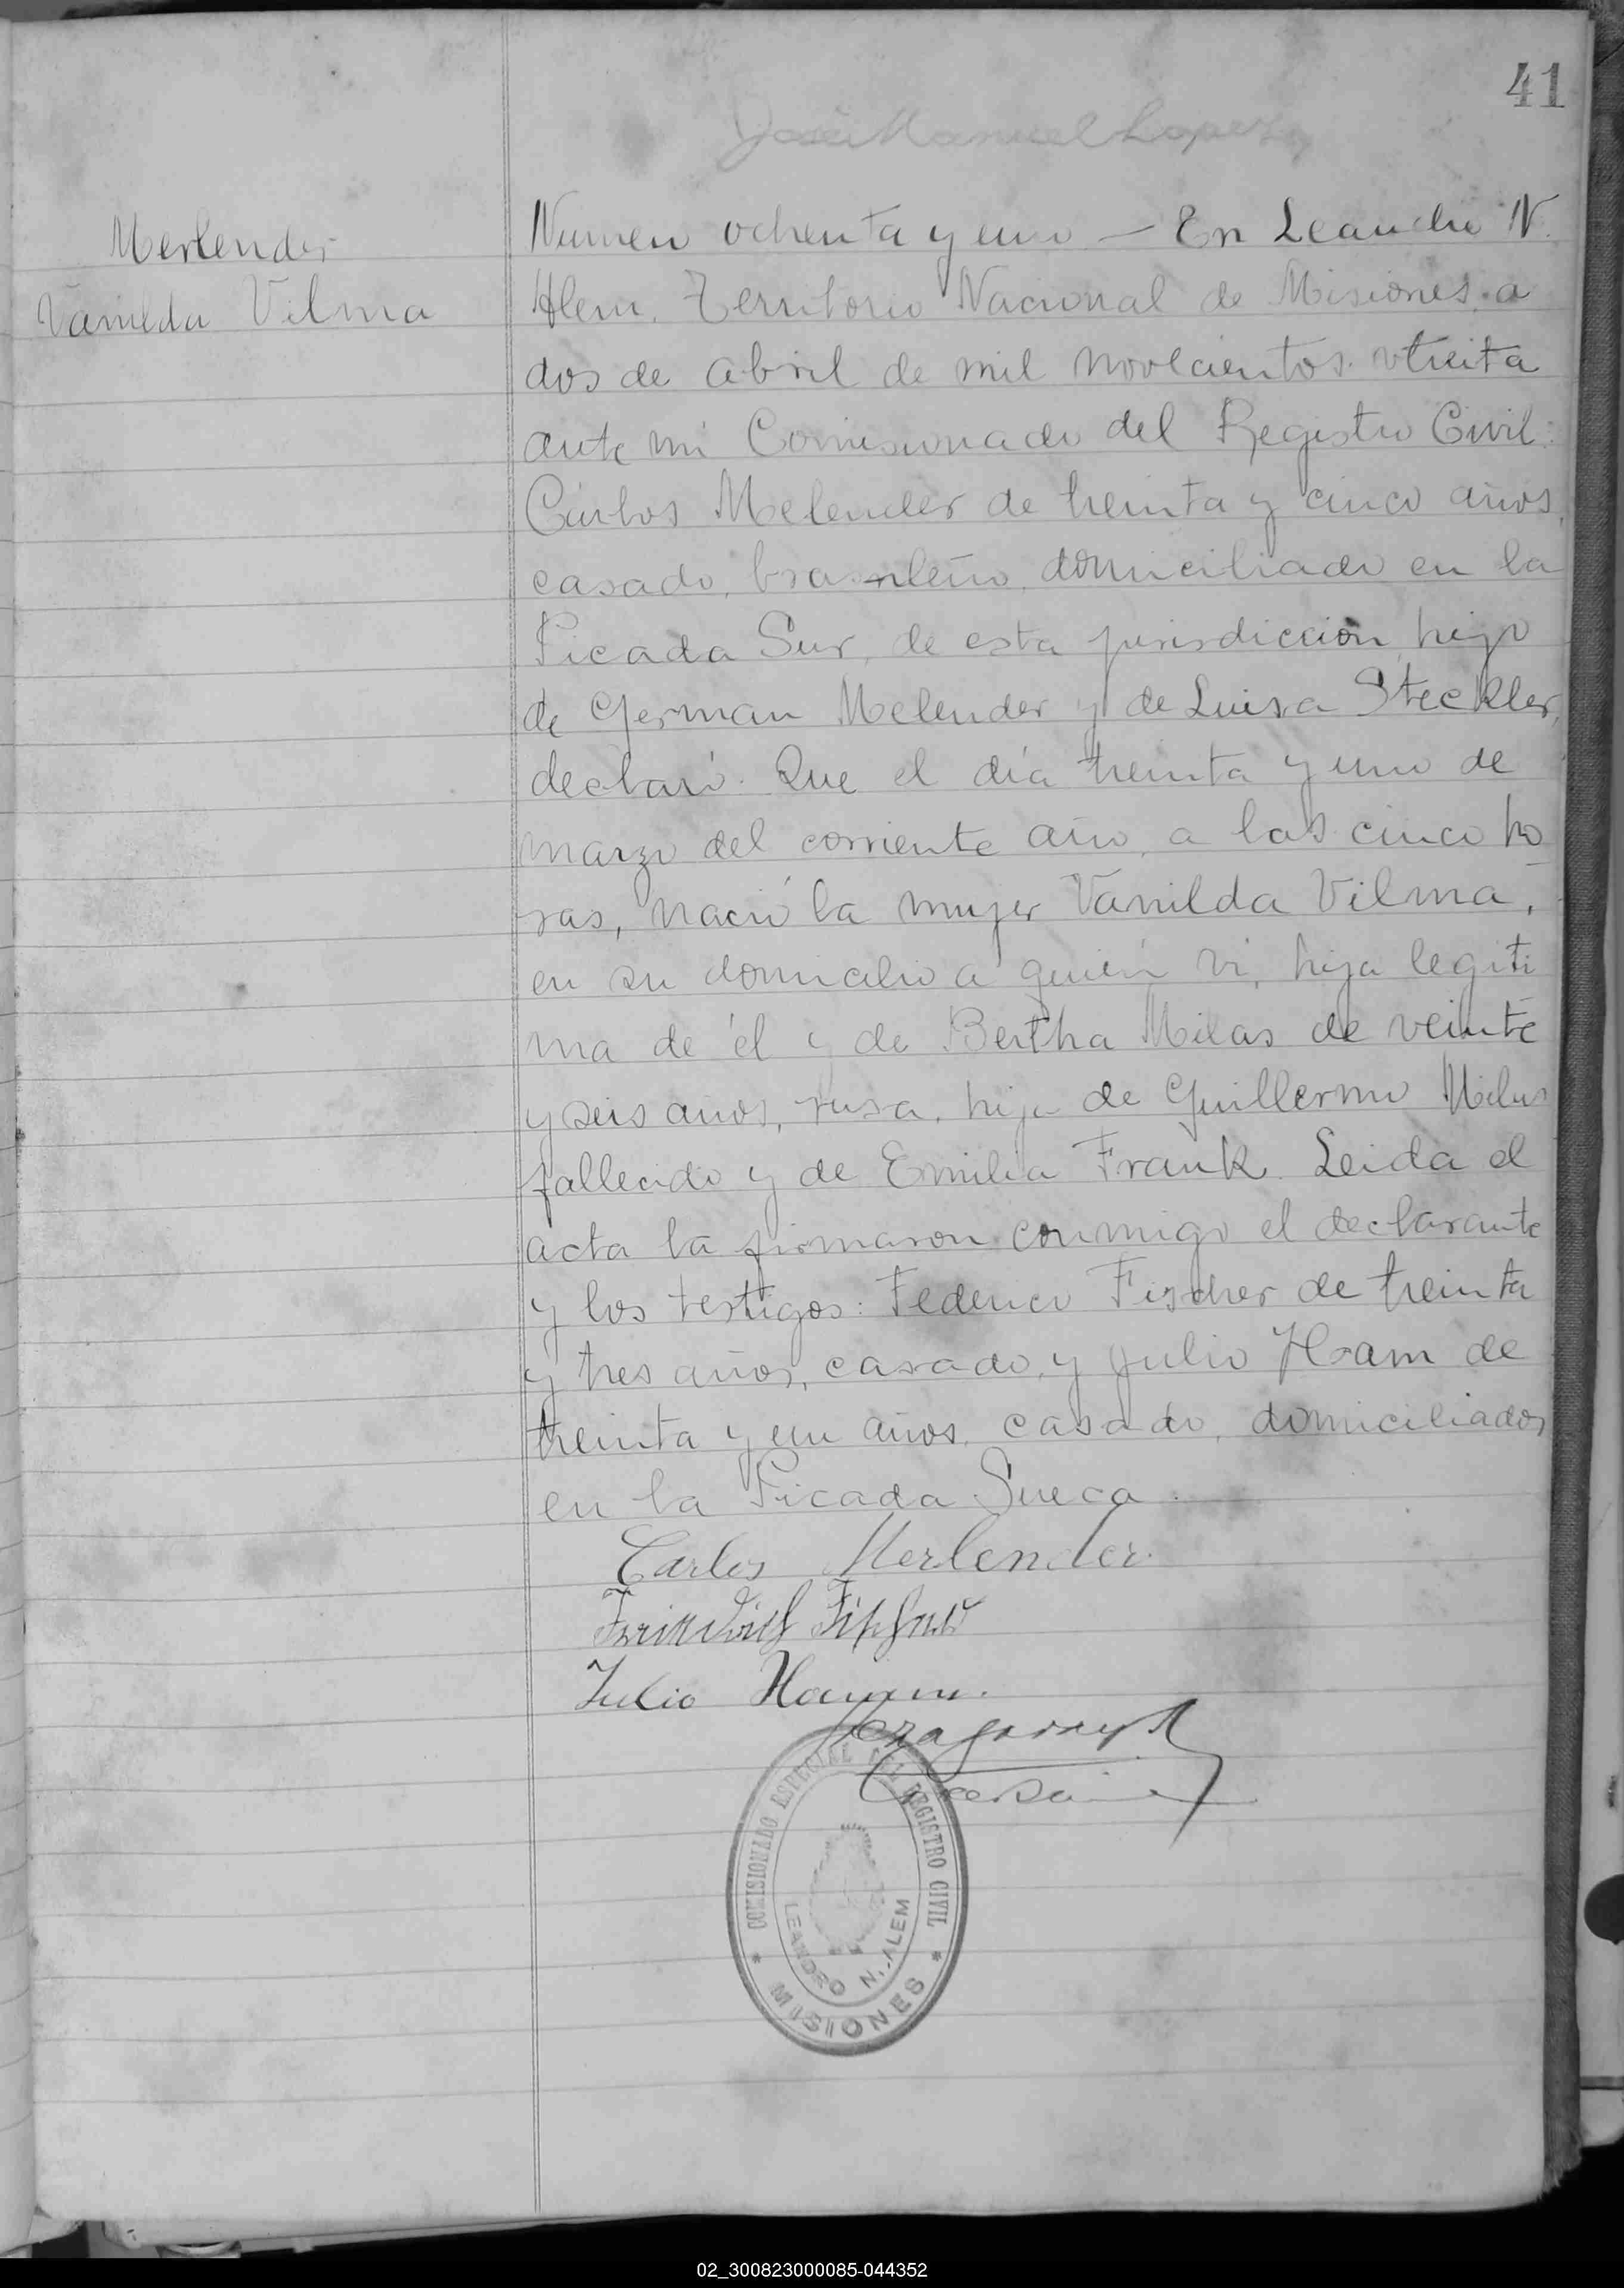 41
José Manuel Lopez
Merlender
Vanilda Vilma
Numero ochenta y uno — En Leandro N.
Alem, Territorio Nacional de Misiones, a
dos de abril de mil novecientos treita
ante mi Comisionado del Registro Civil:
Carlos Melender de treinta y cinco años,
casado, brasileño, domiciliado en la
Picada Sur, de esta jurisdicción, hijo
de German Melender y de Luisa Steckler,
declaró: Que el día treinta y uno de
marzo del corriente año, a las cinco ho
ras, nació la mujer Vanilda Vilma,
en su domicilio a quién vi, hija legiti
ma de él y de Bertha Milas de veinte
y seis años, rusa, hija de Guillermo Milas
fallecido y de Emilia Frank. Leida el
acta la firmaron conmigo el declarante
y los testigos: Federico Fischer de treinta
y tres años, casado, y Julio Ham de
treinta y un años, casado, domiciliados
en la Picada Sueca.
Carlos Merlender.
Friedrich Fischer
Julio Hamm.
COMISIONADO ESPECIAL DEL REGISTRO CIVIL
LEANDRO N. ALEM
* MISIONES *
02_300823000085-044352